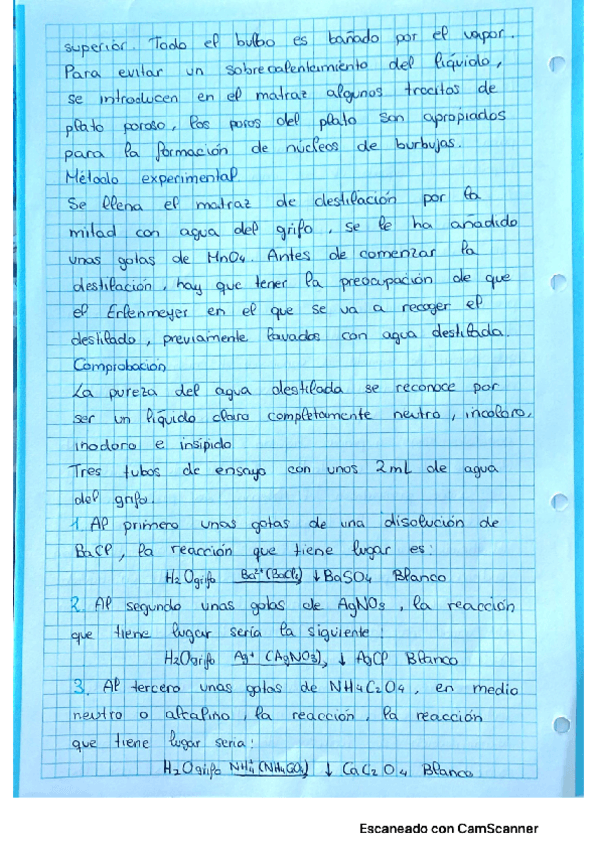 superior. Todo el bulbo es bañado por el vapor.
Para evitar un sobrecalentamiento del líquido,
se introducen en el matraz algunos trocitos de
plato poroso, los poros del plato son apropiados
para la formación de núcleos de burbujas.
Método experimental
Se llena el matraz de destilación por la
mitad con agua del grifo, se le ha añadido
unas gotas de MnO4. Antes de comenzar la
destilación, hay que tener la preocupación de que
el Erlenmeyer en el que se va a recoger el
destilado, previamente lavados con agua destilada.
Comprobación
La pureza del agua destilada se reconoce por
ser un líquido claro completamente neutro, incoloro,
inodoro e insípido
Tres tubos de ensayo con unos 2mL de agua
del grifo.
1. Al primero unas gotas de una disolución de
BaCl, la reacción que tiene lugar es:
H2Ogrifo Ba2+(BaCl2) ↓BaSO4 Blanco
2. Al segundo unas gotas de AgNO3, la reacción
que tiene lugar sería la siguiente:
H2Ogrifo Ag+ (AgNO3), ↓ AgCl Blanco
3. Al tercero unas gotas de NH4C2O4, en medio
neutro o alcalino, la reacción, la reacción
que tiene lugar sería:
H2Ogrifo ↓ CaC2O4 Blanco
Escaneado con CamScanner